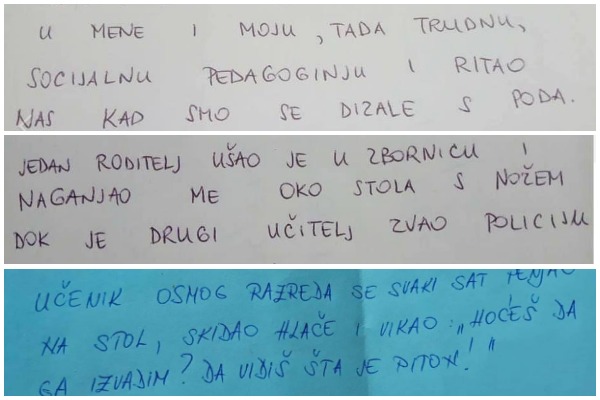 U MENE I MOJU, TADA TRUDNU,
SOCIJALNU PEDAGOGINJU I RITAO
NAS KAD SMO SE DIZALE S PODA.
JEDAN RODITELJ UŠAO JE U ZBORNICU I
NAGANJAO ME OKO STOLA S NOŽEM
DOK JE DRUGI UČITELJ ZVAO POLICIJU
UČENIK OSMOG RAZREDA SE SVAKI SAT PENJAO
NA STOL, SKIDAO HLAČE I VIKAO: „HOĆEŠ DA
GA IZVADIM? DA VIDIŠ ŠTA JE PITON!"